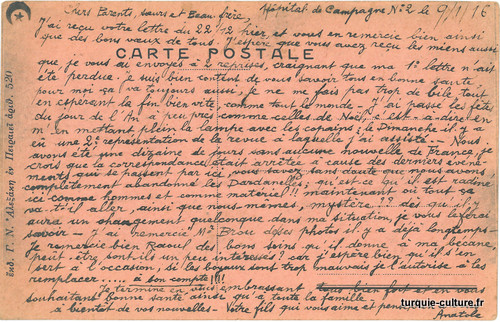 Hôpital de Campagne No 2 le 9/1/16
Chers Parents, sœurs et Beau-frère,
J'ai reçu votre lettre du 22/12 hier, et vous en remercie bien ainsi
que des bons vœux de tous. J'espère que vous avez reçu les miens aussi
CARTE POSTALE
que je vous ai envoyés à 2 reprises, craignant que ma 1e lettre n'ait
été perdue. Je suis bien content de vous savoir tous en bonne santé,
pour moi ça va toujours aussi, je ne me fais pas trop de bile tout
en espérant la fin bien vite, comme tout le monde - J'ai passé les fêtes
du jour de l'An à peu près comme celles de Noël c'est-à-dire en
m'en mettant plein la lampe avec les copains; le Dimanche il y a
eu une 2e représentation de la revue à laquelle j'ai assisté - Nous
avons été une dizaine de jours sans aucune nouvelle de France, je
crois que la correspondance était arrêtée à cause des derniers évène-
ments qui se passent par ici, vous savez sans doute que nous avons
complètement abandonné les Dardanelles; qu'est-ce qu'il est radiné
ici comme hommes et comme matériel!! maintenant où tout ça
va-t-il aller, ainsi que nous-mêmes, mystère?? dès qu'il y
aura un changement quelconque dans ma situation, je vous le ferai
savoir - J'ai remercié Mr Brou des photos il y a déjà longtemps -
Je remercie bien Raoul des bons soins qu'il donne à ma bécane,
peut-être sont-ils un peu intéressés? car j'espère bien qu'il s'en
sert à l'occasion, si les boyaux sont trop mauvais je l'autorise à les
remplacer..... à son compte!!!
Je termine en vous embrassant tous bien fort et en vous
souhaitant bonne santé ainsi qu'à toute la famille
A bientôt de vos nouvelles - Votre fils qui vous aime et pense
Anatole
Ἐκδ. Γ. Ν. Ἀλεξάκη ἐν Πειραιεῖ ἀριθ. 520
turquie-culture.fr